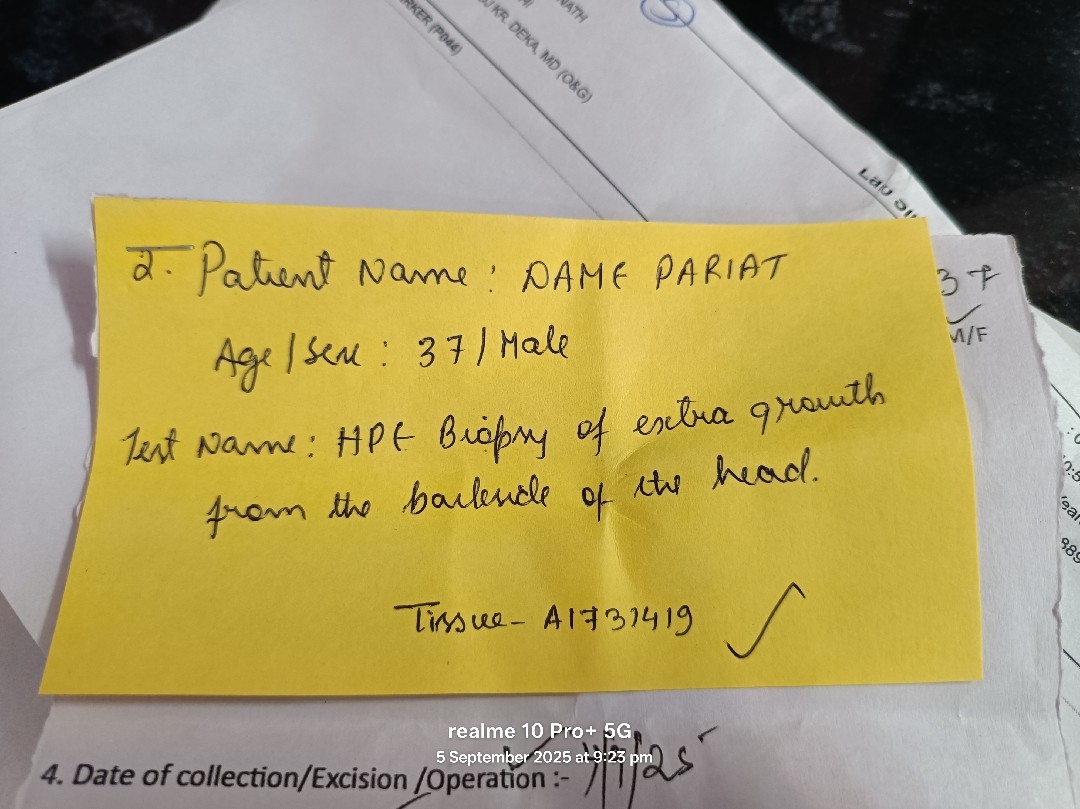 NATH
KR. DEKA, MD (O&G)
RKER (P044)
Lab
2. Patient Name: DAME PARIAT
37
M/F
Age/Sex: 37/Male
Test Name: HPE Biopsy of extra growth
from the backside of the head.
Tissue- A1731419
realme 10 Pro+ 5G
5 September 2025 at 9:23 pm
4. Date of collection/Excision /Operation :-